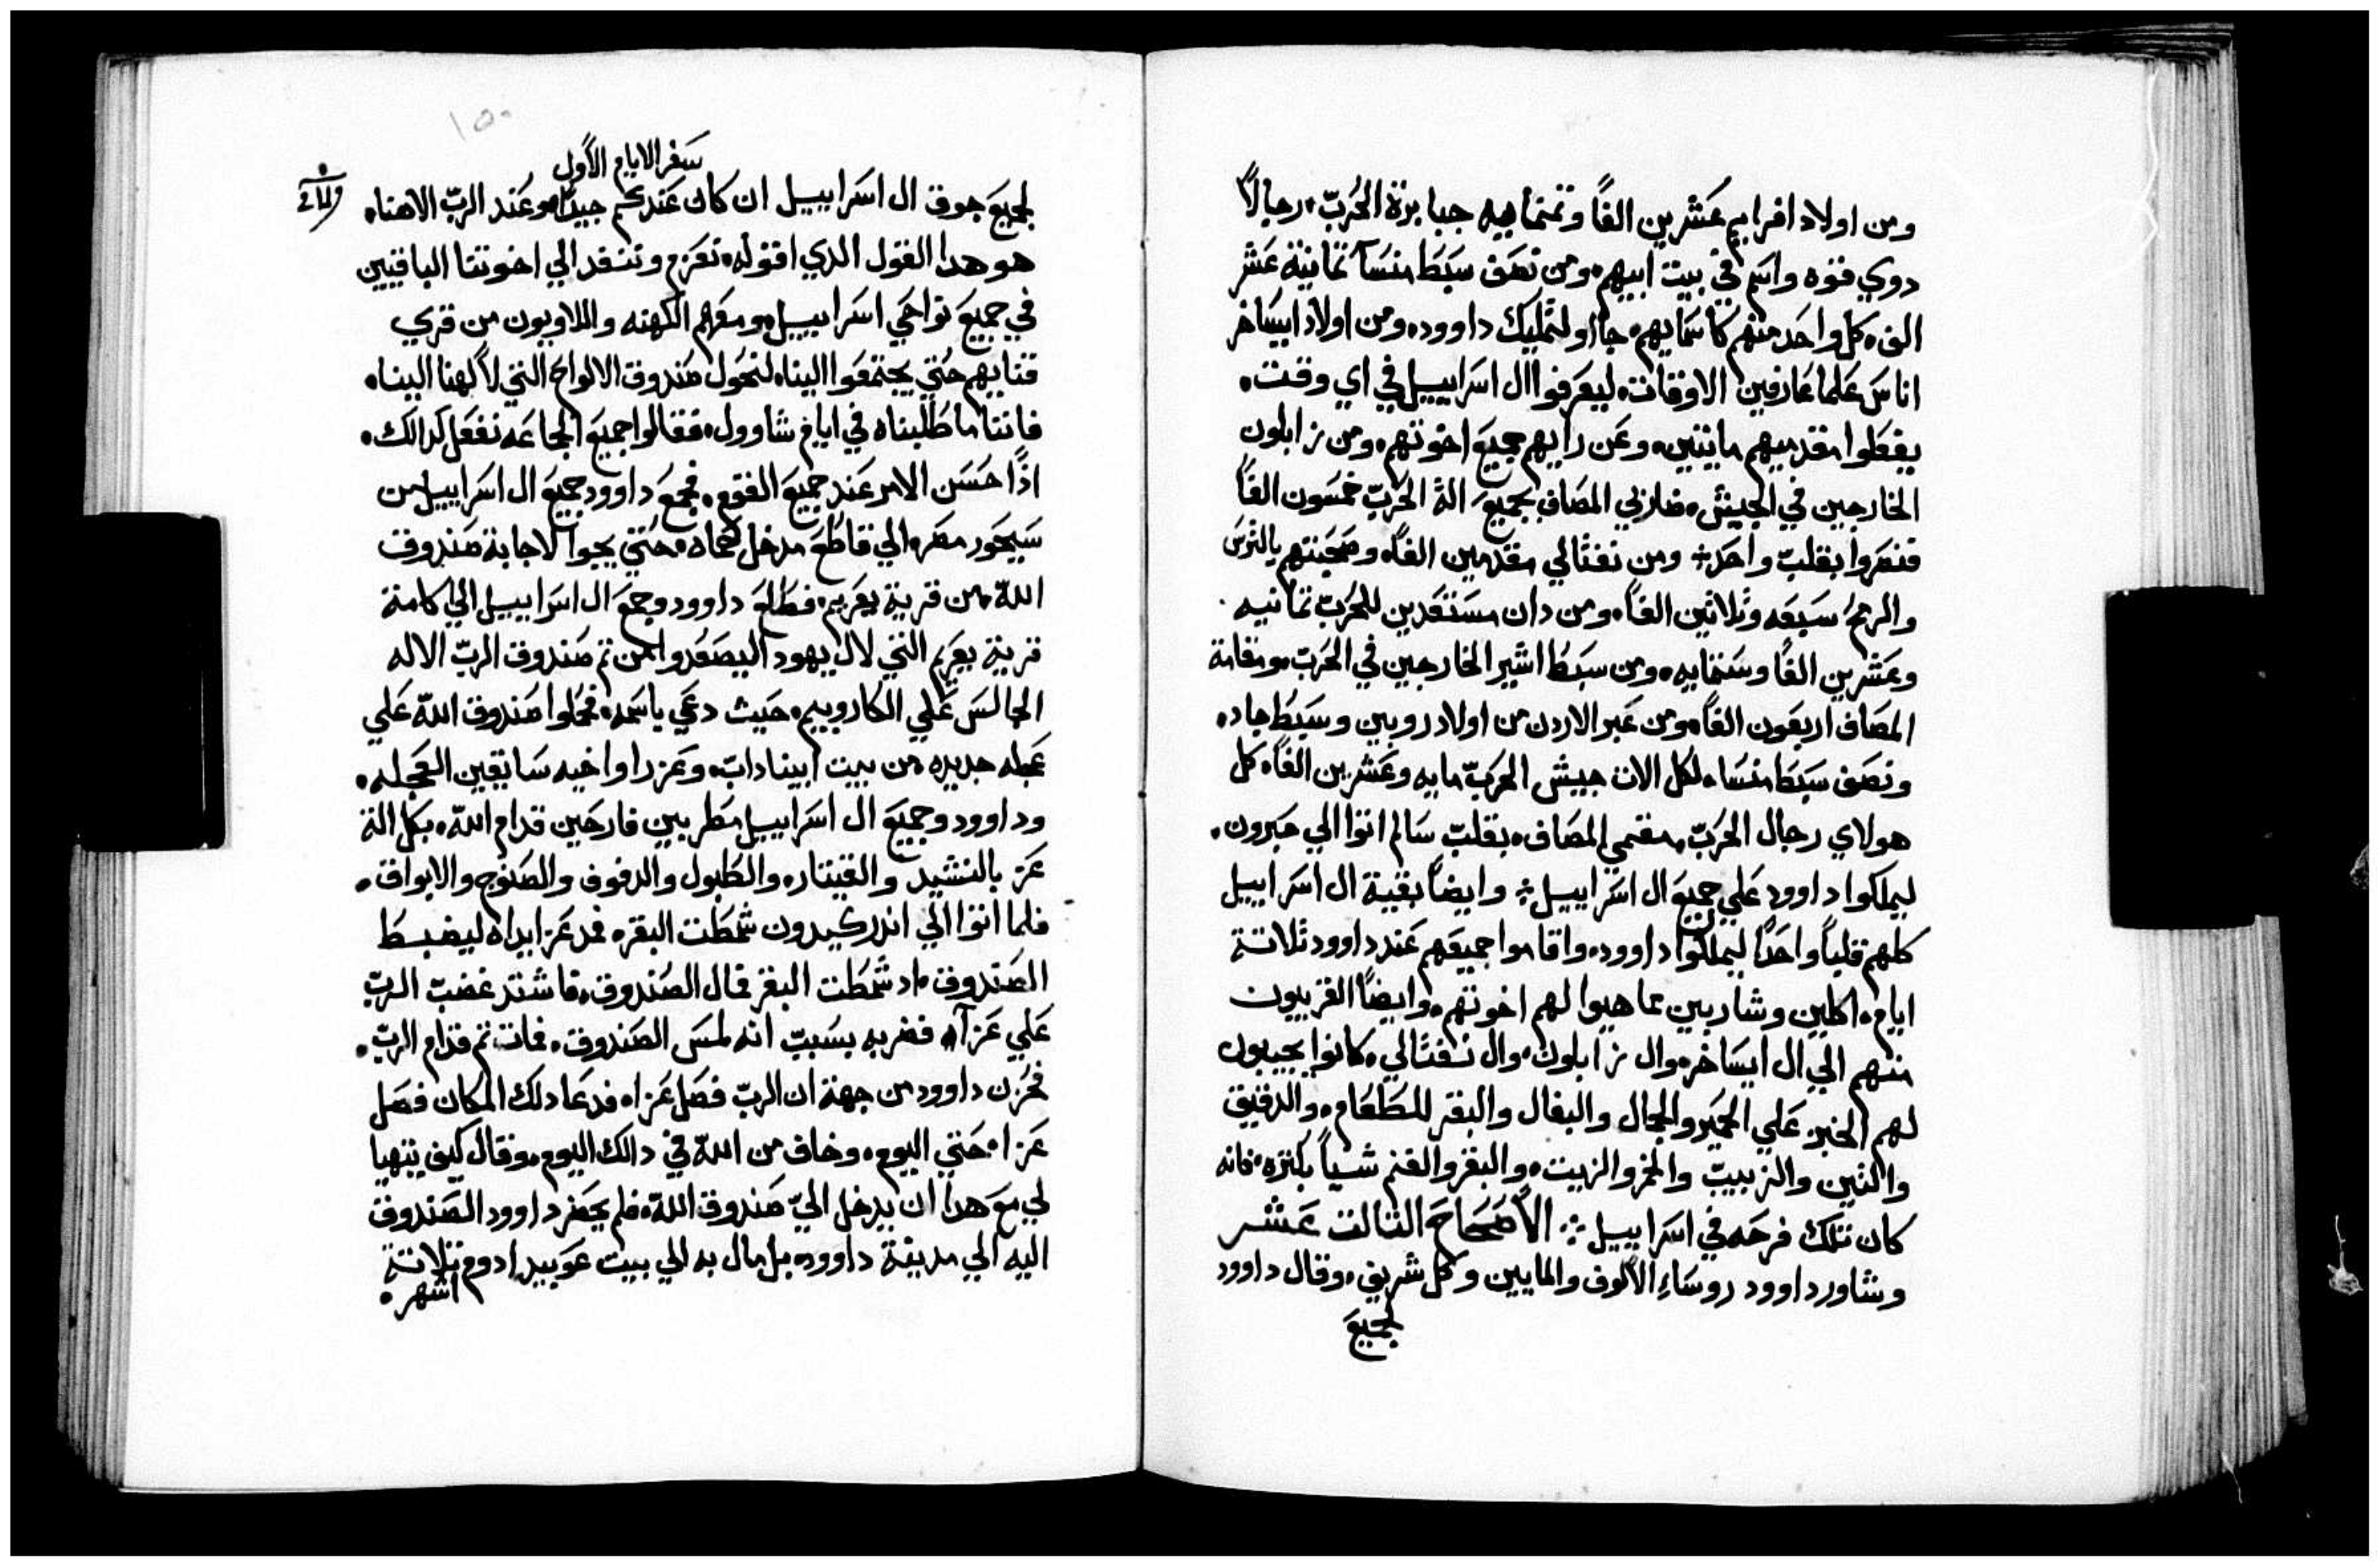 ومن اولاد افرايم عشرين الفاً وتمنمايه جبابرة الحرب، رجالاً
دوي قوه واسم في بيت ابيهم، ومن نصف سبط منسا تمانية عشر
الف، كل واحد منهم كاسمايهم، جااو لتمليك داوود، ومن اولاد ايساخر
اناس علما عارفين الاوقات، ليعرفوا ال اسراييل في اي وقت،
يفعلوا مقدميهم مايتين، وعن رايهم جميع اخوتهم، ومن زابلون
الخارجين في الجيش، ضاربي المصاف بجميع الة الحرب خمسون الفاً
فنصروا بقلب واحد ؞ ومن نفتالي مقدمين الفاً، وصحبتهم بالترس
والرمح سبعه وتلاتين الفاً، ومن دان مستعدين للحرب تمانيه
وعشرين الفاً وستمايه، ومن سبط اشير الخارجين في الحرب، ومقامة
المصاف اربعون الفاً، ومن عبر الاردن من اولاد روبين وسبط جاد،
ونصف سبط منسا، لكل الات جيش الحرب مايه وعشرين الفاً، كل
هولاي رجال الحرب، مقيمي المصاف، بقلب سالم اتوا الي حبرون،
ليملكوا داوود علي جميع ال اسراييل ؞ وايضاً بقية ال اسراييل
كلهم قلباً واحداً ليملكوا داوود، واقاموا جميعهم عند داوود تلاتة
ايام، اكلين وشاربين مما هيوا لهم اخوتهم، وايضاً القريبون
منهم الي ال ايساخر، وال زابلون، وال نفتالي، كانوا يجيبون
لهم الخبز علي الحمير والجمال والبغال والبقر للطعام، والدقيق
والتين والزبيب والخمر والزيت، والبقر والغنم شياً بكتره، فانه
كان تلك فرحه في اسراييل ؞ الأصحاح التالت عشر
وشاور داوود روساءِ الألوف والمايين وكل شريف، وقال داوود
لجميع
١٥٠
سفر الايام الأول
لجميع جوق ال اسراييل ان كان عندكم جيداً، وعند الرب الاهنا،
هو هدا القول الدي اقوله، نعزم وننفد الي اخوتنا الباقيين
في جميع نواحي اسراييل، ومعهم الكهنه واللاويون من قري
قنايهم حتي يجتمعوا الينا، لنحول صندوق الالواح التي لألهنا الينا،
فاننا ما طلبناه في ايام شاوول، فقالوا جميع الجماعه نفعل كدالك،
اذاً حسن الامر عند جميع القوم، فجمع داوود جميع ال اسراييل من
سيحور مصر، الي قاطع مدخل حماه، حتي يجوا لاجابة صندوق
الله من قرية يعريم، فطلع داوود وجميع ال اسراييل الي كامنة
قرية يعريم التي لال يهودا ليصعدوا من تم صندوق الرب الاله
الجالس علي الكاروبيم، حيث دعي باسمه، فحملوا صندوق الله علي
عجله جديده من بيت ابيناداب، وعزرا واخيه سايقين العجله،
وداوود وجميع ال اسراييل مطربين فارحين قدام الله، بكل الة
عز بالنشيد والقيتاره والطبول والدفوف والصنوج والابواق،
فلما اتوا الي اندر كيدون شمطت البقره فمد عزا يداه ليضبط
الصندوق، اد شمطت البقر فمال الصندوق، فاشتد غضب الرب
علي عزاه فضربه بسبب انه لمس الصندوق، فمات تم قدام الرب،
فحزن داوود من جهة ان الرب فصل عزا، فدعا دلك المكان فصل
عزا، حتي اليوم، وخاف من الله في دالك اليوم، وقال كيف يتهيا
لي مع هدا ان يدخل اليّ صندوق الله، فلم يحضر داوود الصندوق
اليه الي مدينة داوود، بل مال به الي بيت عوبيد ادوم تلاتة
اشهر،